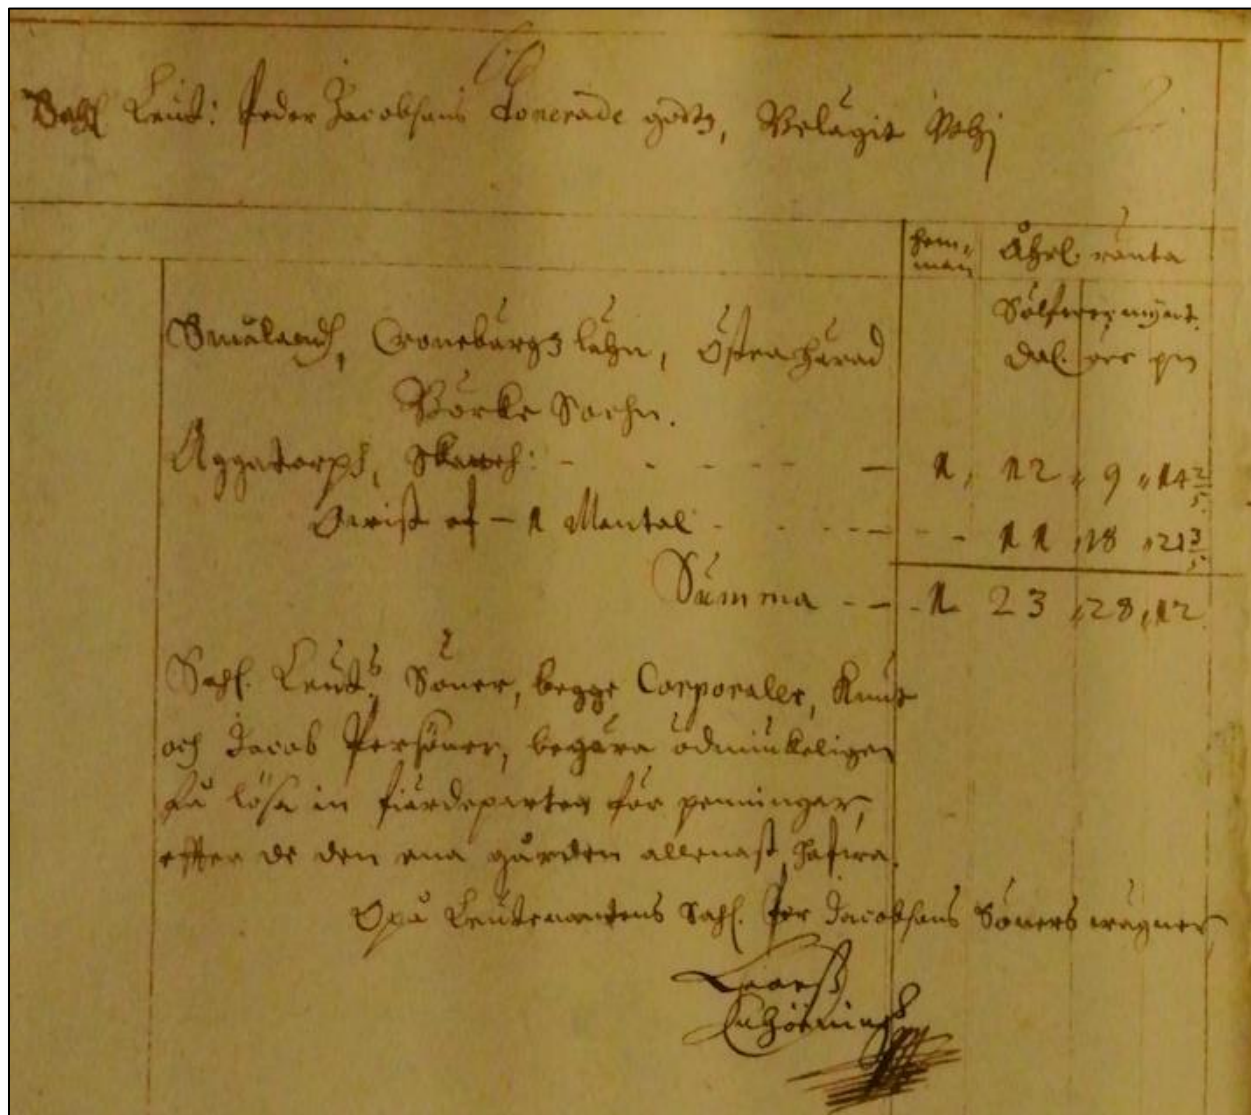 Sahl Leut: Peder Jacobsons Donerade godz, Belägit Uthj
2
hem„
man
Åhrl. ränta
Sölfwermynt.
Dal. öre pn
Småland, Cronebärgz lähn, Östra härad
Börke Sochn.
Aggatorph, Skatteh: - - - - - 1„ 12 „ 9 „ 14 2/5
Övrist af - 1 Mantal - - - - 11 „ 18 „ 21 3/5
Summa - - - 1 23 „ 28 „ 12
Sahl. Leut:s Söner, begge Corporaler, Knut
och Jacob Persöner, begära ödmiukeligen
få lösa in fiärdeparten för penningar,
effter de den ena gården allenast hafwa.
Opå Leutenantens Sahl. Per Jacobsons Söners wägner
Laarß
Enhörningh